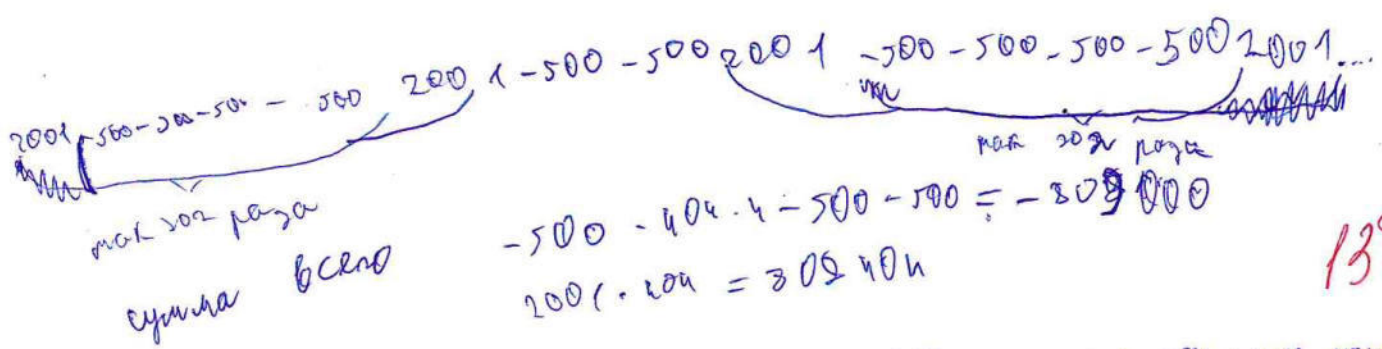 2001 -500-500-500- 500 2001 -500 -500 2001 -500 -500 -500 -500 2001...
так 202 раза
так 202 раза
сумма всего
-500 · 404 · 4 - 500 - 500 = -809000
2001 · 404 = 808404
13